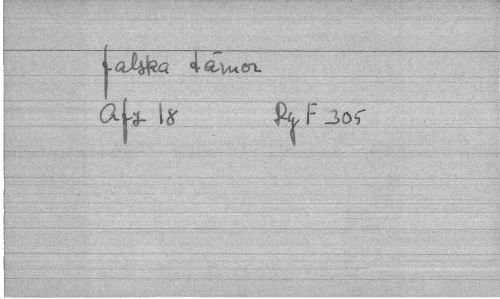 falska tämor
Afz 18 Rg F 305